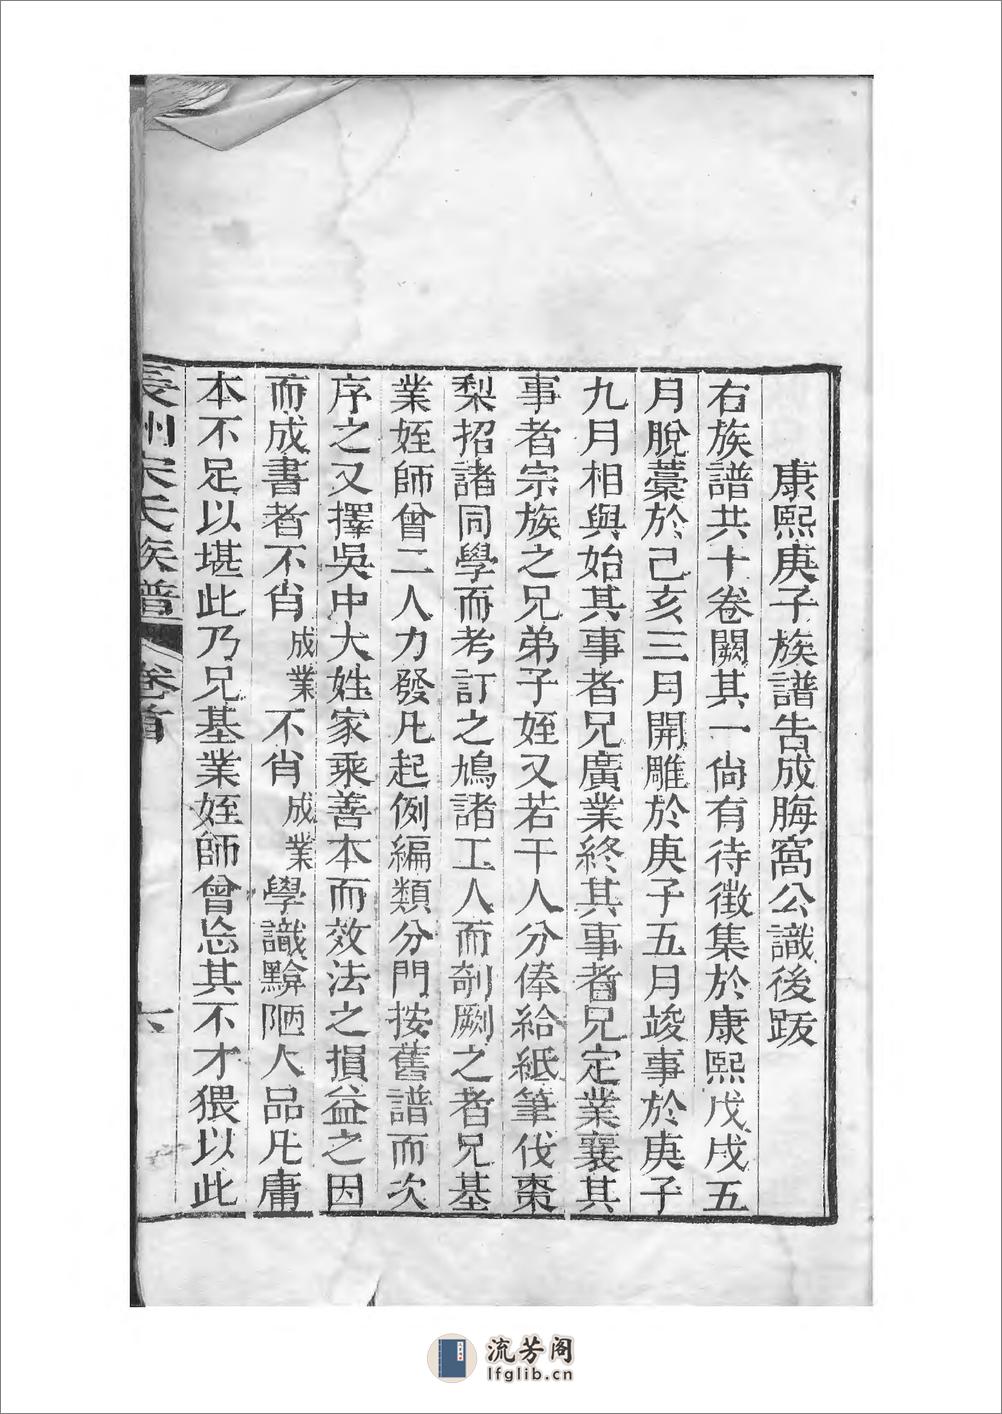 康熙庚子族譜告成晦窩公識後跋
右族譜共十卷闕其一尙有待徵集於康熙戊戌五
月脫藁於己亥三月開雕於庚子五月竣事於庚子
九月相與始其事者兄廣業終其事者兄定業襄其
事者宗族之兄弟子姪又若干人分俸給紙筆伐棗
梨招諸同學而考訂之鳩諸工人而剞劂之者兄基
業姪師曾二人力發凡起例編類分門按舊譜而次
序之又擇吳中大姓家乘善本而效法之損益之因
而成書者不肖成業不肖成業學識黯陋人品凡庸
本不足以堪此乃兄基業姪師曾忘其不才猥以此
長州宋氏族譜 卷首 六
流芳阁
lfglib.cn